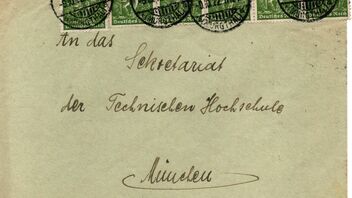 Deutsches Reich
An das
Sekretariat
der Technischen Hochschule
München